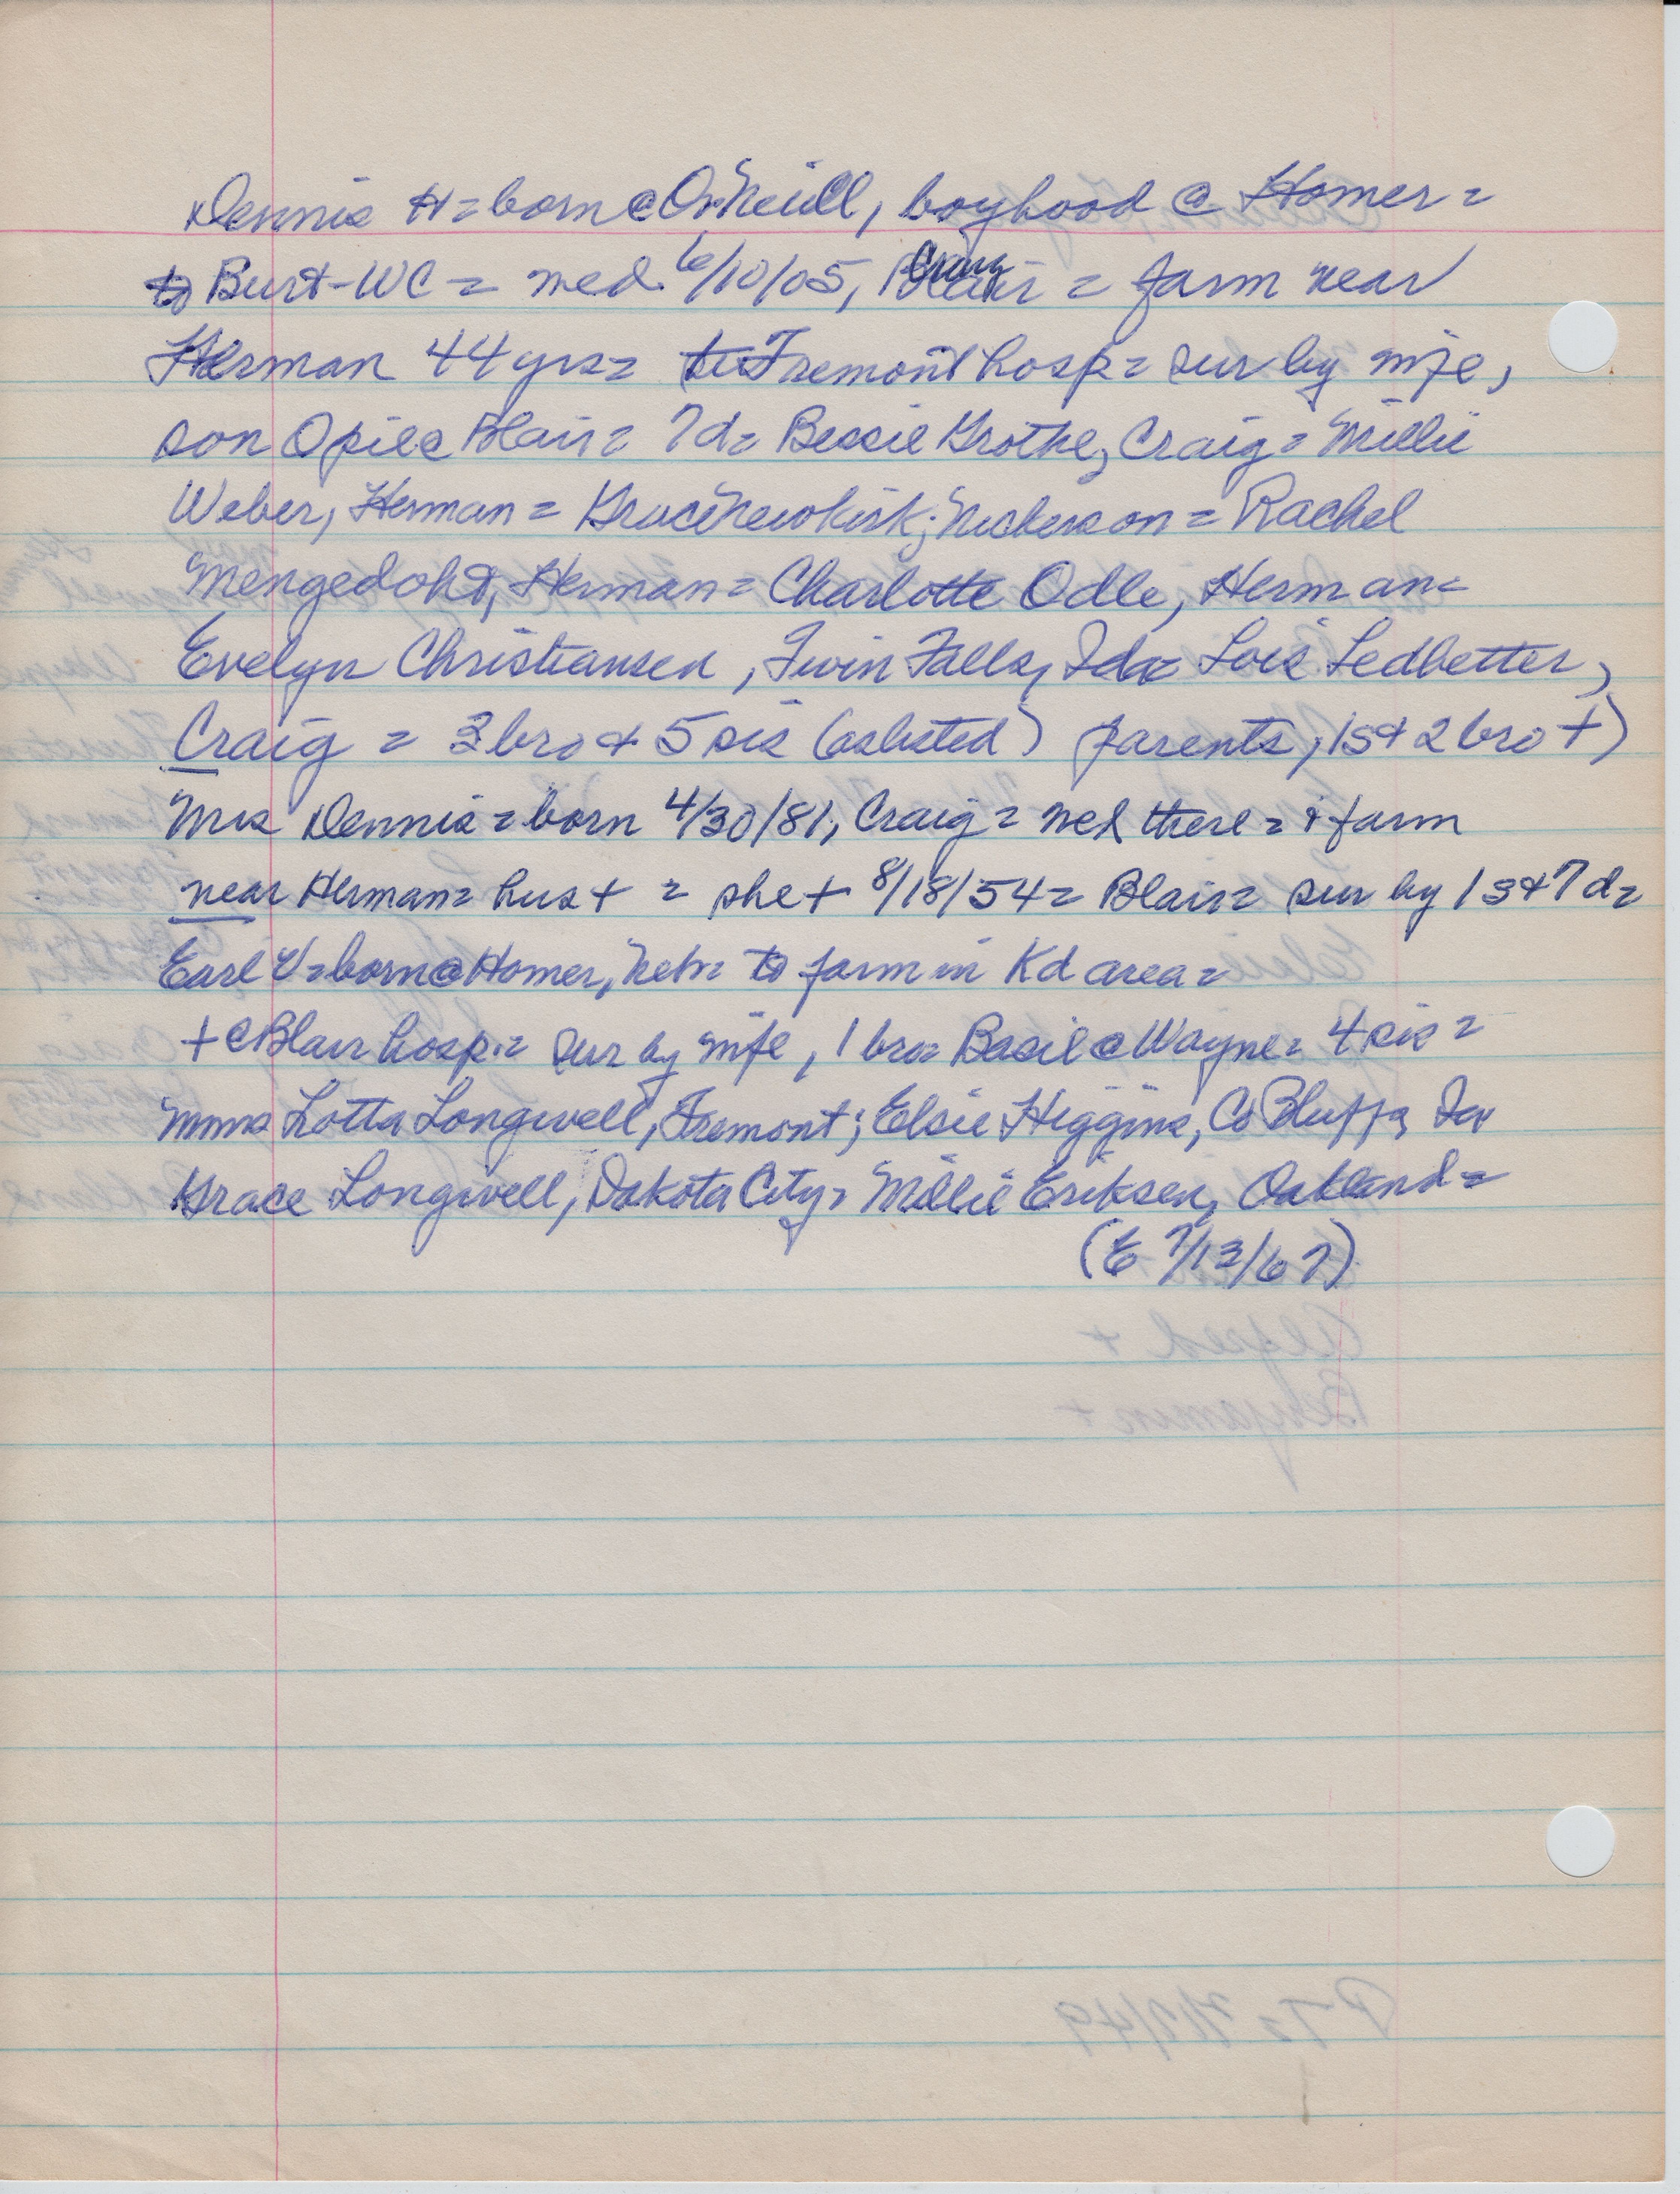 Dennis H = born @ O'Neill, boyhood @ Homer =
to Burt-WC = wed 6/10/05, Craig = farm near
Herman 44 yrs = Fremont hosp = sur by wife,
son Opie @ Blair = 7d = Bessie Grothe, Craig = Millie
Weber, Herman = Grace Newkirk, Nickerson = Rachel
Mengedoht, Herman = Charlotte Odle, Herman =
Evelyn Christiansen, Twin Falls, Ida = Lois Ledbetter,
Craig = 3 bro & 5 sis (as listed) parents, 1s & 2 bro +)
Mrs Dennis = born 4/30/81, Craig = wed there = & farm
near Herman = hus + = she + 8/18/54 = Blair = sur by 1s & 7d =
Earl V = born @ Homer, Neb = to farm in Kd area =
+ @ Blair hosp. = sur by wife, 1 bro = Basil @ Wayne = 4 sis =
Mmes Lotta Longwell, Fremont; Elsie Higgins, Co Bluffs, Ia
Grace Longwell, Dakota City = Millie Eriksen, Oakland =
(E 7/13/67)